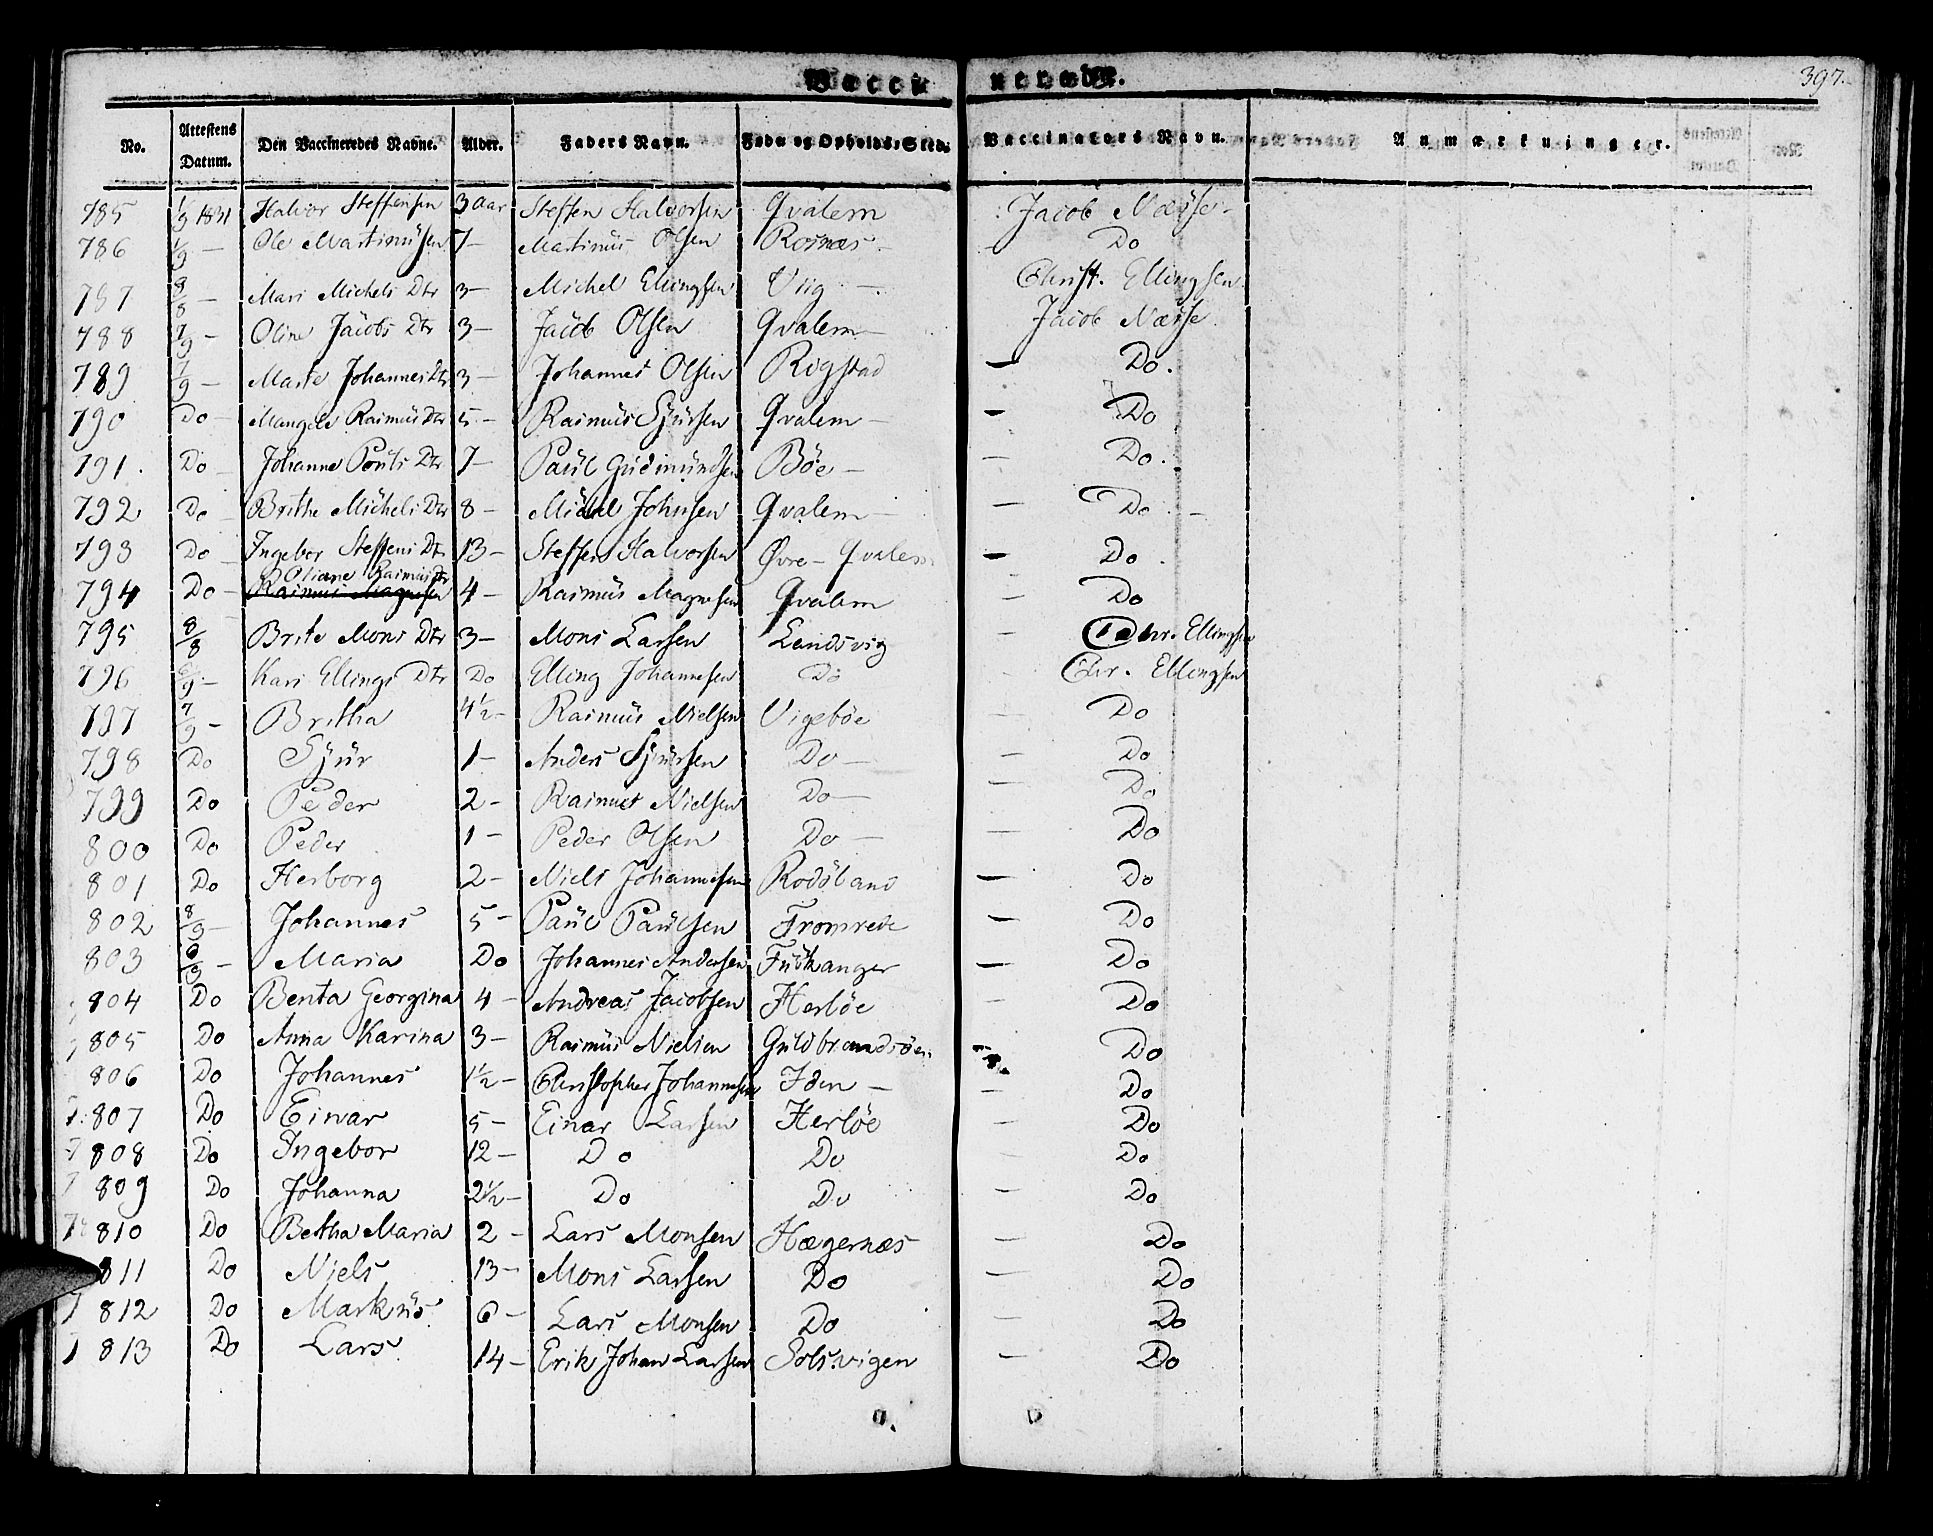 Vaccinerede.
397.
No. Attestens Datum. Den Vaccineredes Navne. Alder. Faders Navn. Føde og Opholds-Sted. Vaccinateurs Navn. Anmærkninger.
785 1/9 1831 Halvor Steffensen 3 aar Steffen Halvorsen Qvalem Jacob Næsse
786 1/9 — Ole Martinusen 7 — Martinus Olsen Rosnæs — Do
787 8/8 — Mari Michels Dtr 3 — Michel Ellingsen Viig — Christ. Ellingsen
788 7/9 — Oline Jacobs Dtr 3 — Jacob Olsen Qvalem — Jacob Næsse
789 7/9 — Marte Johannes Dtr 3 — Johannes Olsen Rigstad — Do.
790 Do — Mangele Rasmus Dtr 5 — Rasmus Sjursen Qvalem — — Do
791. Do — Johanne Pouls Dtr 7 — Paul Gudmundsen Bøe — — Do.
792 Do — Brithe Michels Dtr 8 — Michel Johnsen Qvalem — — Do. —
793 Do — Ingebor Steffens Dtr 13 — Steffen Halvorsen Øvre - Qvalem — Do.
Oliane Rasmus Dtr
794 Do — Rasmus Magnesen 4 — Rasmus Magnesen Qvalem — Do
795 8/8 Brite Mons Dtr 3 — Mons Larsen Landsvig — Chr. Ellingsen
796 /9 — Kari Ellings Dtr Do Elling Johannesen Do Chr. Ellingsen
797 7/9 — Britha 4½ — Rasmus Nielsen Vigebøe — Do
798 Do Sjur 1 — Anders Sjursen Do — — Do
799 Do Peder 2 — Rasmus Nielsen Do — — Do
800 Do Peder 1 — Peder Olsen Do — — Do
801 Do Herborg 2 — Niels Johannesen Rodsland — Do
802 8/9 — Johannes 5 — Paul Paulsen Fromrede — Do
803 6/9 — Maria Do Johannes Andersen Futhanger — Do
804 Do Benta Georgina 4 — Andreas Jacobsen Herløe — Do
805 Do Anna Karina 3 — Rasmus Nielsen Guldbrandsøen — Do
806 Do Johannes 1½ — Christopher Johannesen Iden — — Do
807 Do Einar 5 — Einar Larsen Herløe — Do
808 Do Ingebor 12 — Do Do — Do
809 Do Johanna 2½ — Do Do — Do
810 Do Betha Maria 2 — Lars Monsen Hægernæs — Do
811 Do Niels 13 — Mons Larsen Do — Do
812 Do Markus 6 — Lars Monsen Do — Do
813 Do Lars 14 — Erik Johan Larsen Solsvigen — Do